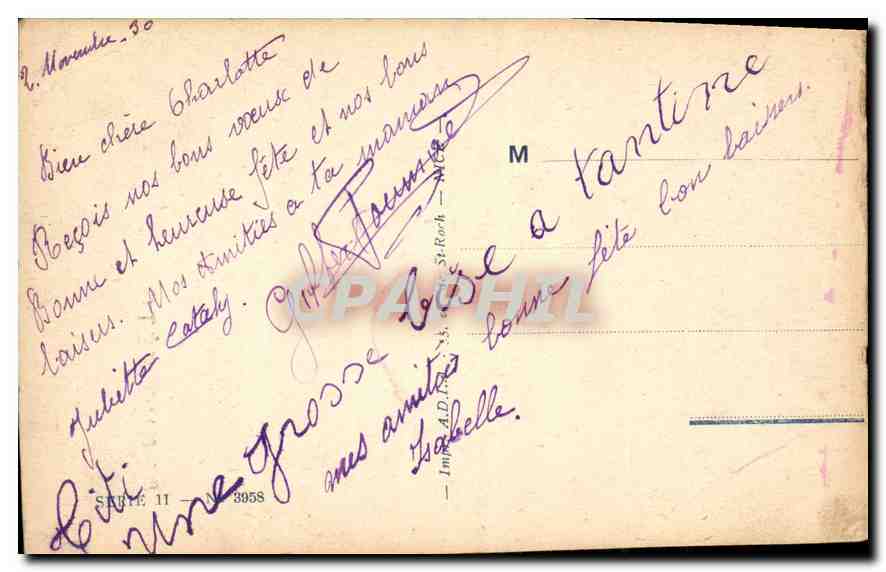 2. Novembre _ 30
Bien chère Charlotte
Reçois nos bons voeux de
Bonne et heureuse fête et nos bons
baisers. Mes Amitiés a ta maman.
Juliette Cataly.
Titi
Une grosse bise a tantine
mes amitiés bonne fête bon baisers.
Isabelle.
M
SERIE 11 — No 3958
St-Roch —
CPAPHIL